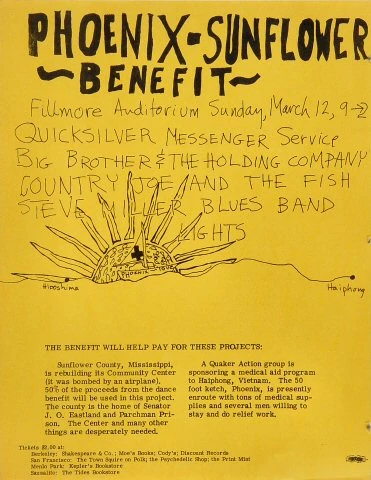 PHOENIX-SUNFLOWER
~BENEFIT~
Fillmore Auditorium Sunday, March 12, 9→2
QUICKSILVER MESSENGER SERVICE
BIG BROTHER & THE HOLDING COMPANY
COUNTRY JOE AND THE FISH
STEVE MILLER BLUES BAND
LIGHTS
PHOENIX
Hiroshima
Haiphong
THE BENEFIT WILL HELP PAY FOR THESE PROJECTS:
Sunflower County, Mississippi,
is rebuilding its Community Center
(it was bombed by an airplane).
50% of the proceeds from the dance
benefit will be used in this project.
The county is the home of Senator
J. O. Eastland and Parchman Pri-
son. The Center and many other
things are desperately needed.
A Quaker Action group is
sponsoring a medical aid program
to Haiphong, Vietnam. The 50
foot ketch, Phoenix, is presently
enroute with tons of medical sup-
plies and several men willing to
stay and do relief work.
Tickets $2.00 at:
Berkeley: Shakespeare & Co.; Moe's Books; Cody's; Discount Records
San Francisco: The Town Squire on Polk; the Psychedelic Shop; the Print Mint
Menlo Park: Kepler's Bookstore
Sausalito: The Tides Bookstore